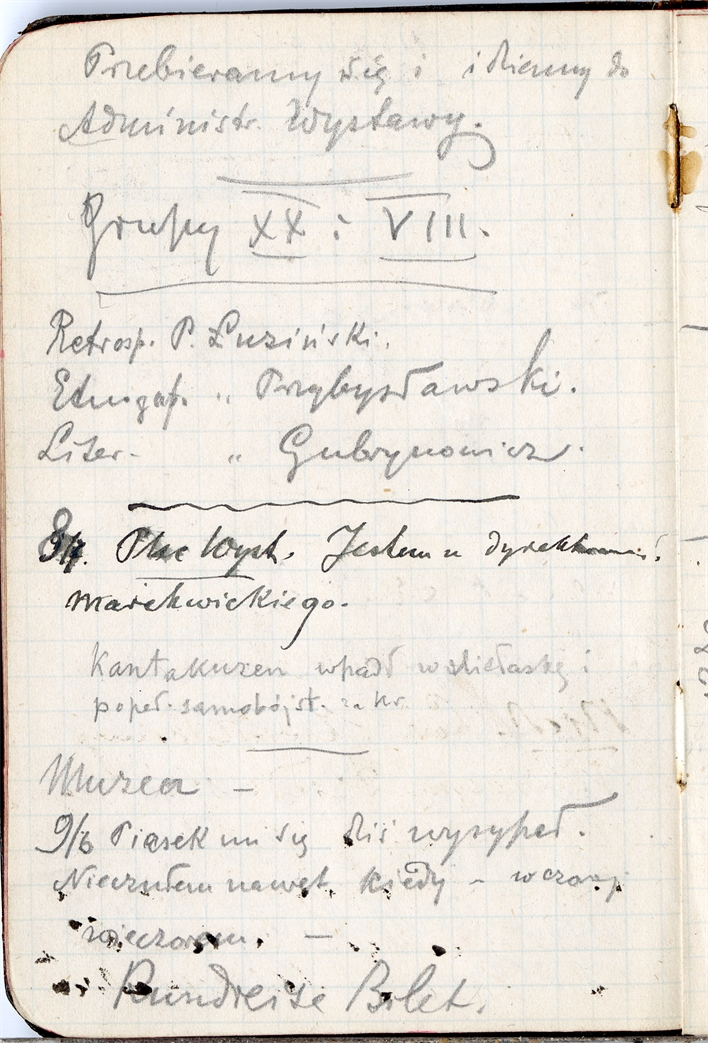 Przebieramy się i idziemy do
Administr. Wystawy.
Grupy XX i VIII.
Retrosp. P. Łuziński.
Etnogaf. " Przybysławski.
Liter. - " Gubrynowicz.
Plac Wyst. Jestem u dyrektora
Marchwickiego.
Kantakuzen wpadł w
popeł. samobójst.
Muzea -
9/6 Piasek mi się dziś wysypał.
Nieczułem nawet kiedy - wczoraj
wieczorem. -
Rundreise Bilet.